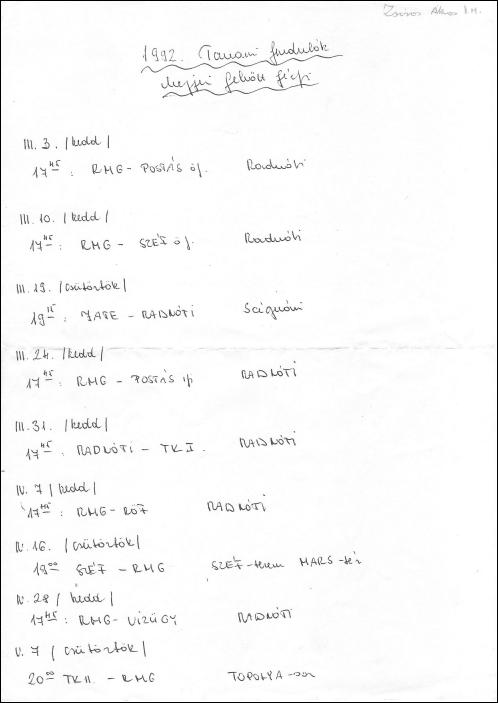 Ákos
1992. Tavaszi fordulók
Megyei felnőtt férfi
III. 3. /kedd/
17 45 : RMG - POSTÁS öf. Radnóti
III. 10. /kedd/
17 45 : RMG - SZÉF öf. Radnóti
III. 19. /csütörtök/
19 15 : JATE - RADNÓTI
III. 24. /kedd/
17 45 : RMG - POSTÁS ifi RADNÓTI
III. 31. /kedd/
17 45 : RADNÓTI - TK I. RADNÓTI
IV. 7 /kedd/
17 45 : RMG - RADNÓTI
IV. 16. /csütörtök/
19 00 SZÉF - RMG SZÉF-terem MARS-tér
IV. 28 /kedd/
17 45 : RMG - VÍZÜGY RADNÓTI
V. 7 /csütörtök/
20 00 TK II. - RMG TOPOLYA-sor